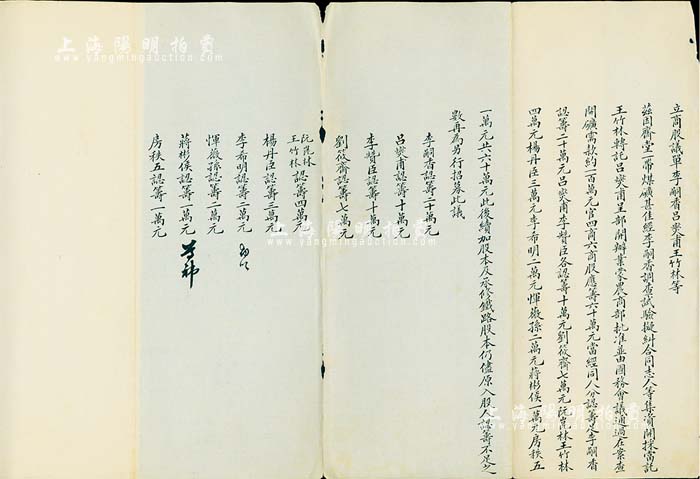 立商股議單李嗣香呂奕甫王竹林等
茲因齊堂一帶煤礦甚佳經李嗣香調查試驗擬糾合同志人等集資開採當託
王竹林轉託呂奕甫呈部開辦業蒙農商部批准並由國務會議通過在案查
開礦需款約一百萬元官四商六商股應籌六十萬元當經同人分認籌足李嗣香
認籌二十萬元呂奕甫李贊臣各認籌十萬元劉筱齋七萬元阮崑林王竹林
四萬元楊丹臣三萬元李希明二萬元惲薇孫二萬元蔣彬侯一萬元房秩五
一萬元共六十萬元此後續加股本及承修鐵路股本仍儘原入股人認籌不足之
數再為另行招募此議
李嗣香認籌二十萬元
呂奕甫認籌十萬元
李贊臣認籌十萬元
劉筱齋認籌七萬元
阮崑林
王竹林認籌四萬元
楊丹臣認籌三萬元
李希明認籌二萬元
惲薇孫認籌二萬元
蔣彬侯認籌一萬元
房秩五認籌一萬元
上海陽明拍賣
www.yangmingauction.com
上海陽明拍賣
www.yangmingauction.com